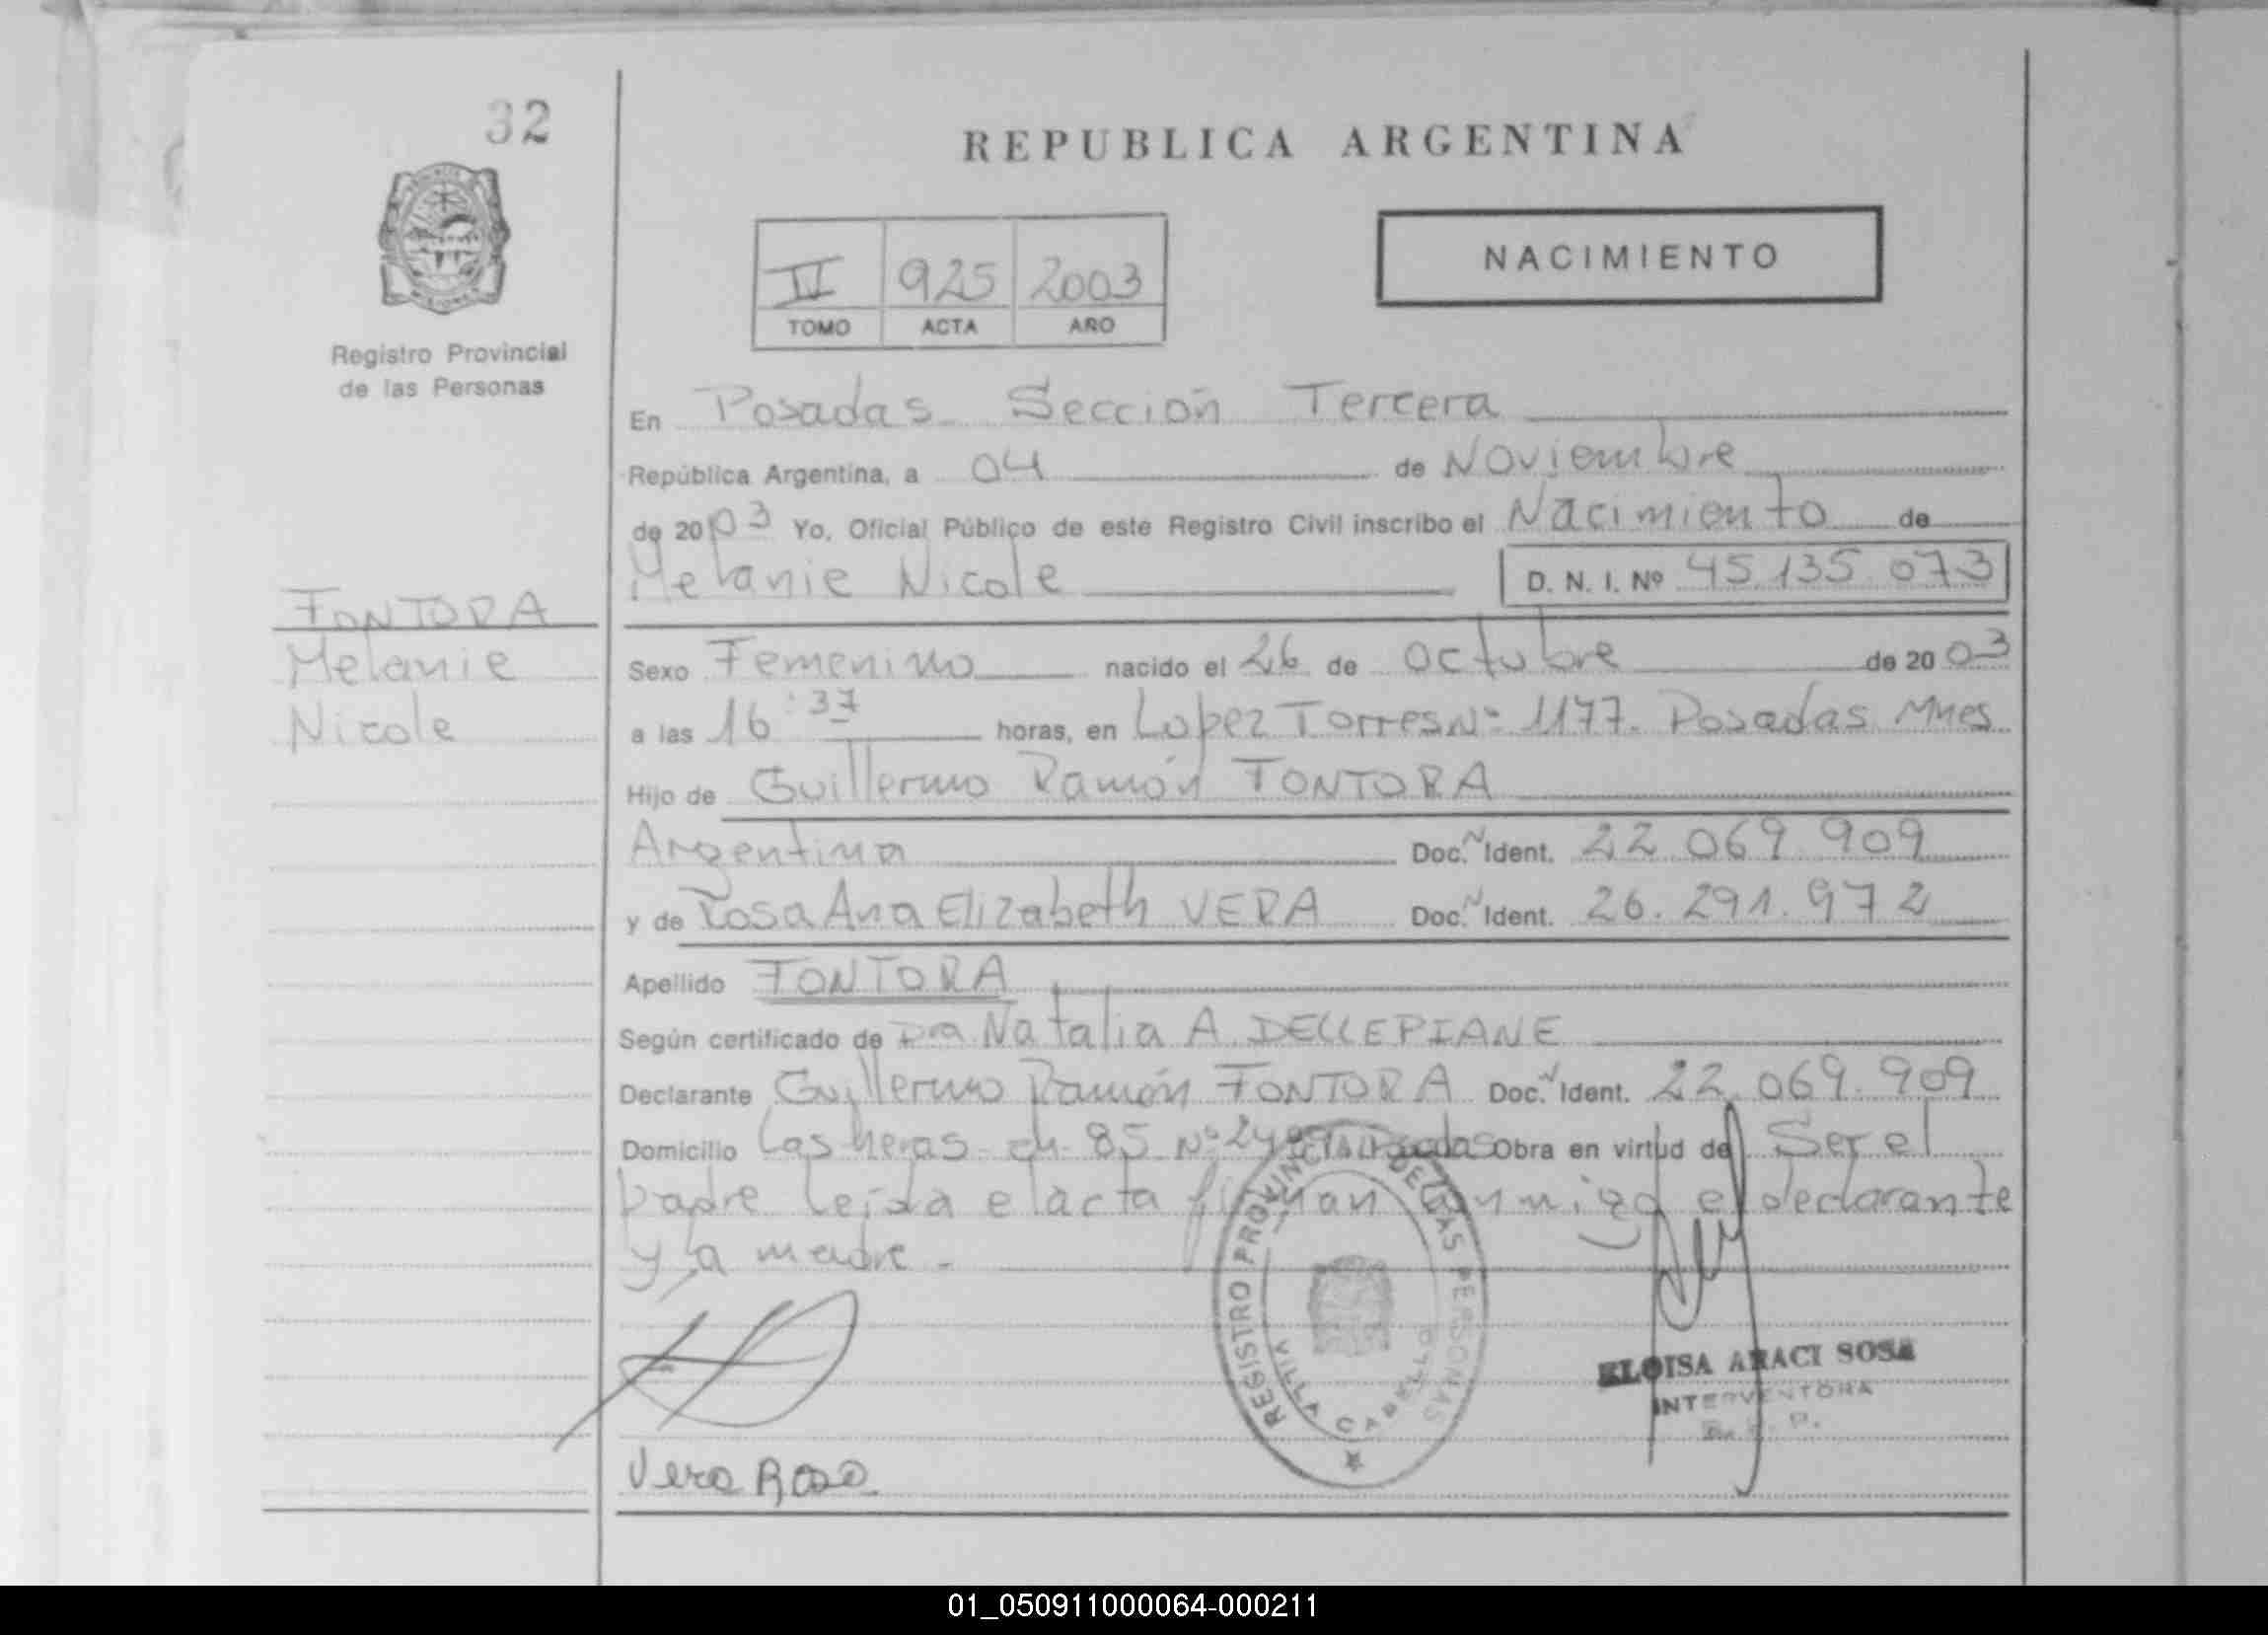 32
REPUBLICA ARGENTINA
NACIMIENTO
II 925 2003
TOMO ACTA AÑO
Registro Provincial
de las Personas
En Posadas Sección Tercera
República Argentina, a 04 de Noviembre
de 2003 Yo, Oficial Público de este Registro Civil inscribo el Nacimiento de
Melanie Nicole D. N. I. Nº 45.135.073
FONTORA
Melanie
Nicole
Sexo Femenino nacido el 26 de octubre de 2003
a las 16:37 horas, en Lopez Torres Nº 1177. Posadas Mnes
Hijo de Guillermo Ramón FONTORA
Argentina Doc. Ident. 22.069.909
y de Rosa Ana Elizabeth VERA Doc. Ident. 26.291.972
Apellido FONTORA
Según certificado de Dra Natalia A. DELLEPIANE
Declarante Guillermo Ramón FONTORA Doc. Ident. 22.069.909
Domicilio Las heras ch 85 Nº Posadas Obra en virtud de Ser el
padre leida el acta firman conmigo el declarante
y la madre.-
REGISTRO PROVINCIAL DE LAS PERSONAS
VILLA CABELLO
ELOISA ARACI SOSA
INTERVENTORA
Vera Rosa
01_050911000064-000211